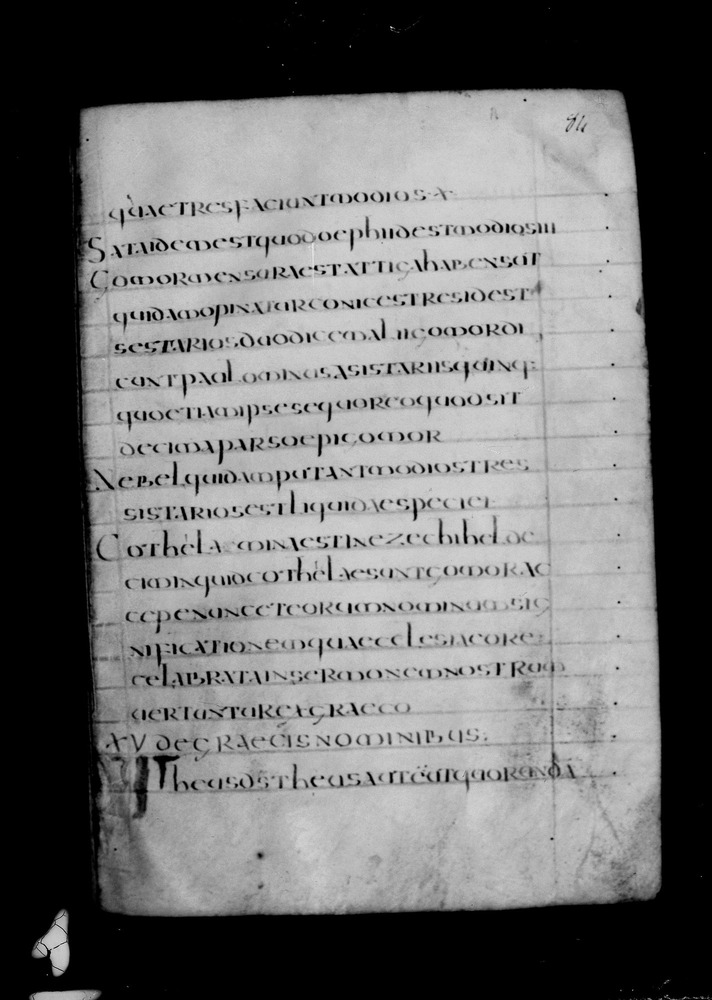 84
quaetresfaciuntmodios x
Sataidemestquodoephiidestmodiosiii
Gomormensuraestatticahabensut
quidamopinaturconicestresidest
sestariosduodicemaliigomordi
cuntpaulominusasistariisquinq:
quoetiamipsesequoreoquodsit
decimaparsoepigomor
Nebelquidamputantmodiostres
sistariosestliquidaespeciei
Gothela minaestinezechihelde
ciminquidgothelaesuntgomorac
cepenunceteorumnominumsig
nificationemquaecclesiaegre
celabrataINsermonemnostrum
uertunturexgraeco
XV degraecisnominibus.
Theusdstheusauteutquorunda